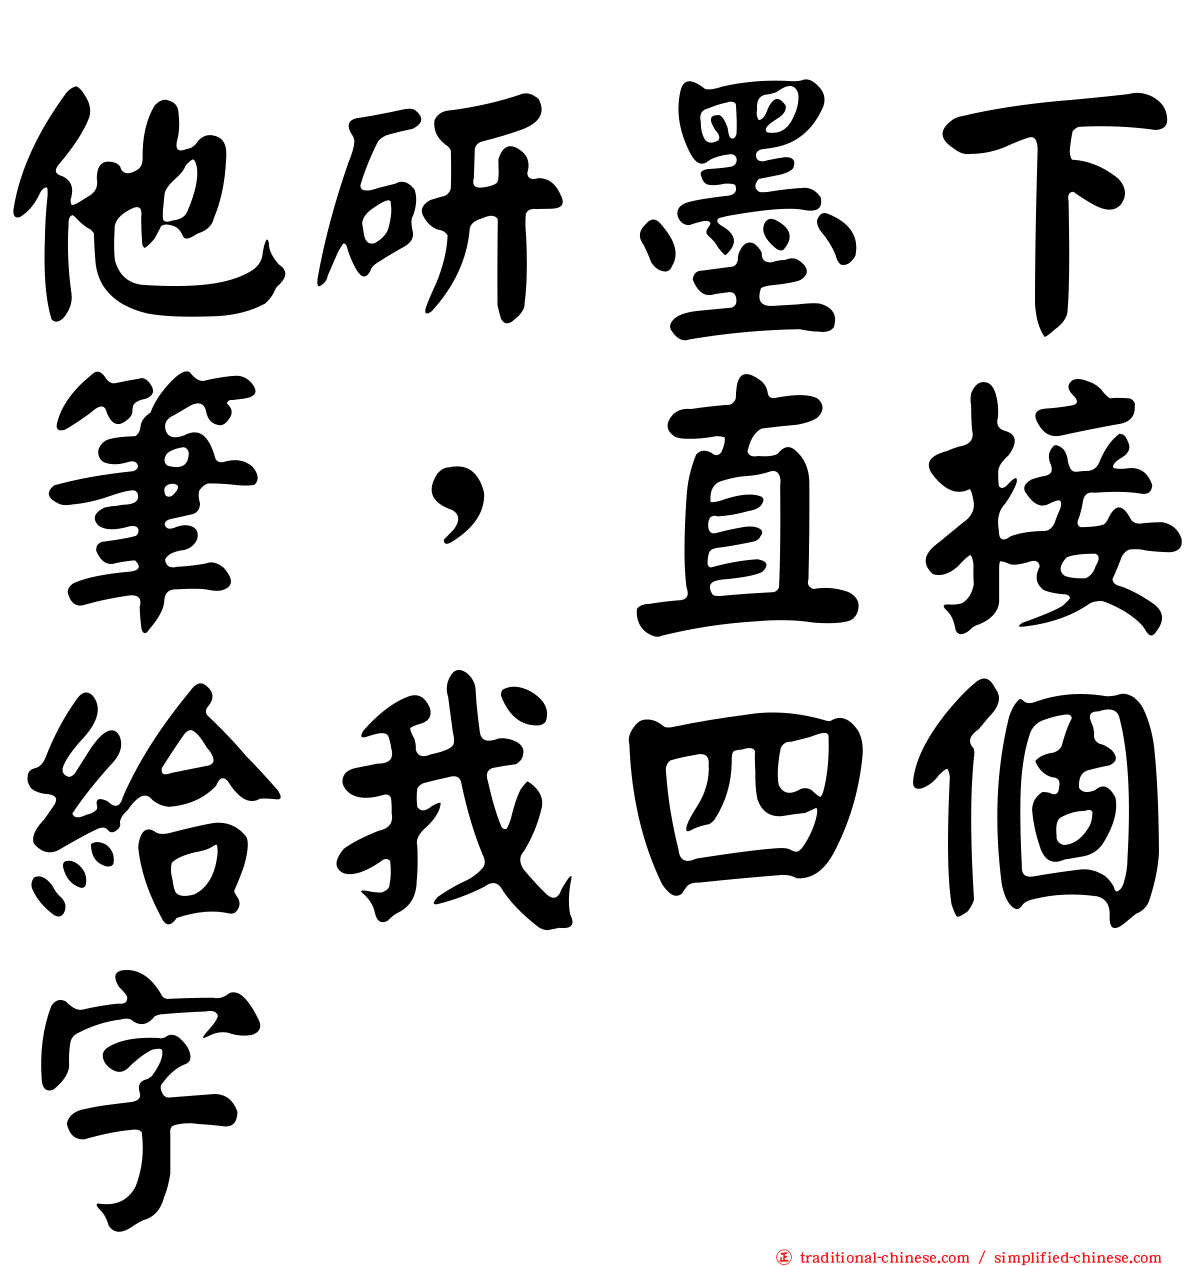 他研墨下
筆，直接
給我四個
字
㊣ traditional-chinese.com / simplified-chinese.com